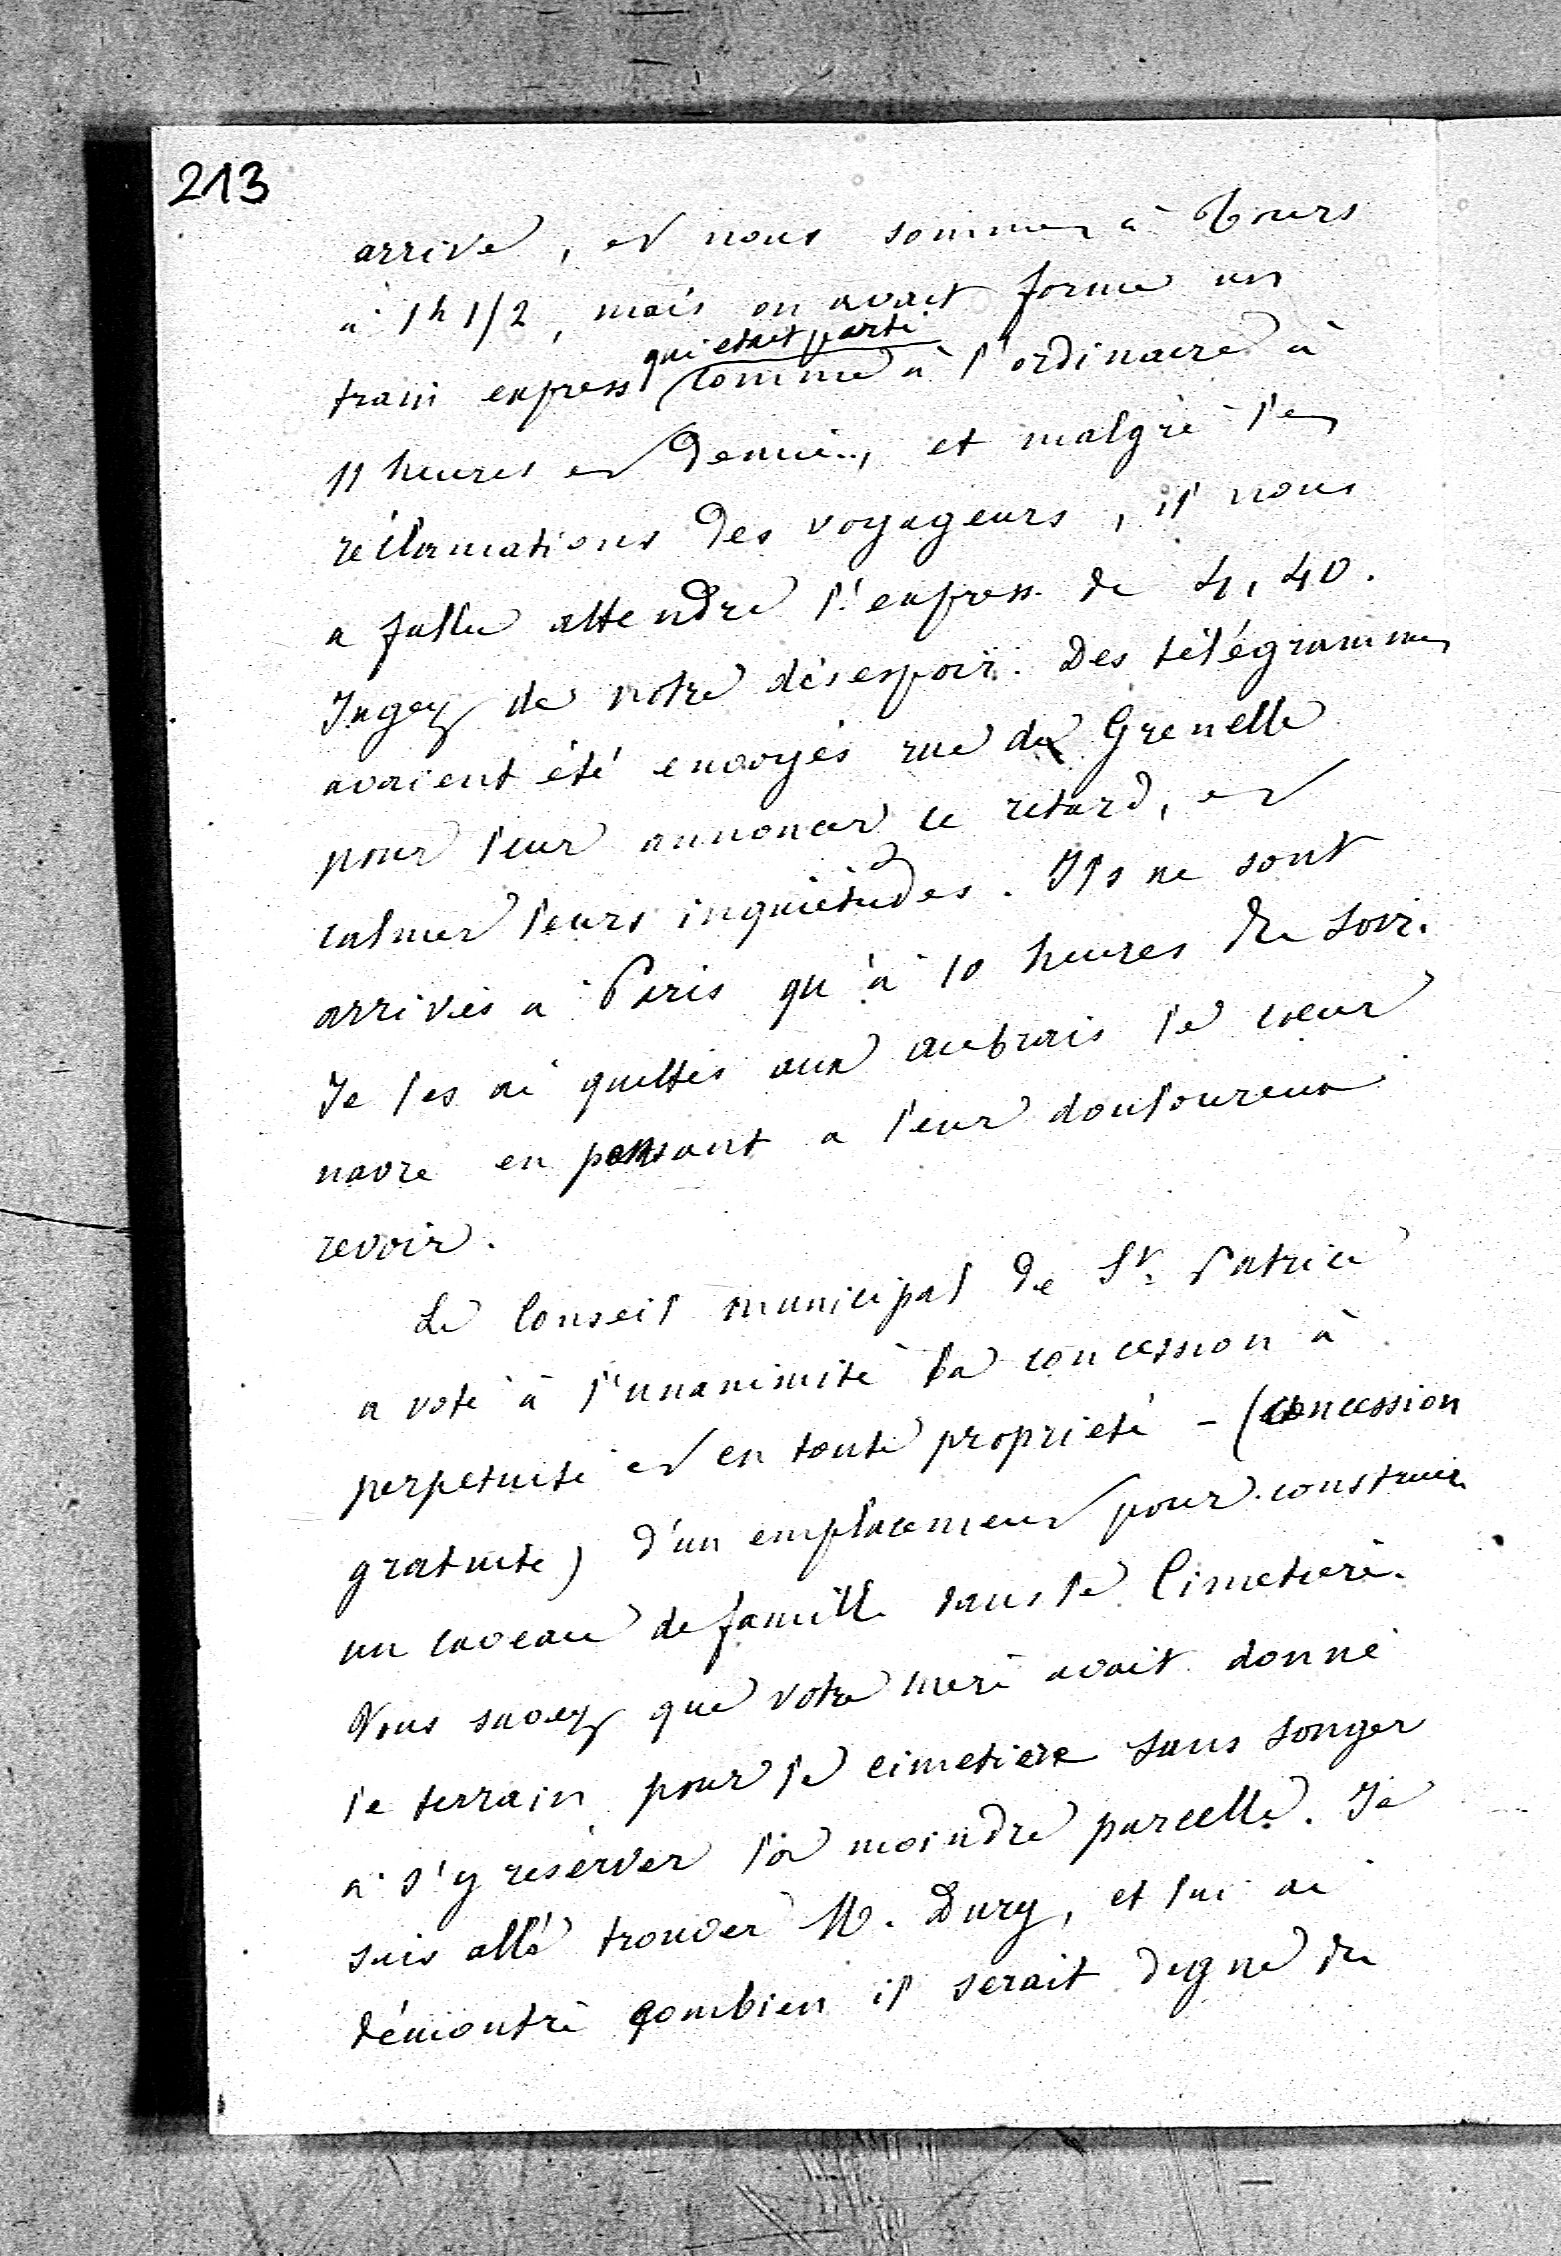 213
arrivé, et nous sommes à Tours
à 1h 1/2, mais on avait formé un
qui etait parti
train express comme à l'ordinaire à
11 heures et demie, et malgré les
réclamations des voyageurs, il nous
a fallu attendre l'express de 4,40.
Jugez de notre désespoir. Des télégrammes
avaient été envoyés rue de Grenelle
pour leur annoncer ce retard, et
calmer leurs inquiétudes. Ils ne sont
arrivés à Paris qu'à 10 heures du soir.
Je les ai quittés aux aubrais le cœur
navré en pensant a leur douloureux
revoir.
Le Conseil municipal de St. Patrice
a voté à l'unanimité la concession à
perpetuité et en toute proprieté - (concession
gratuite) d'un emplacement pour construire
un caveau de famille dans le Cimetière.
Vous savez que votre mère avait donné
le terrain pour le cimetiere sans songer
à s'y réserver la moindre parcelle. Je
suis allé trouver M. Dury, et lui ai
démontré combien il serait digne du